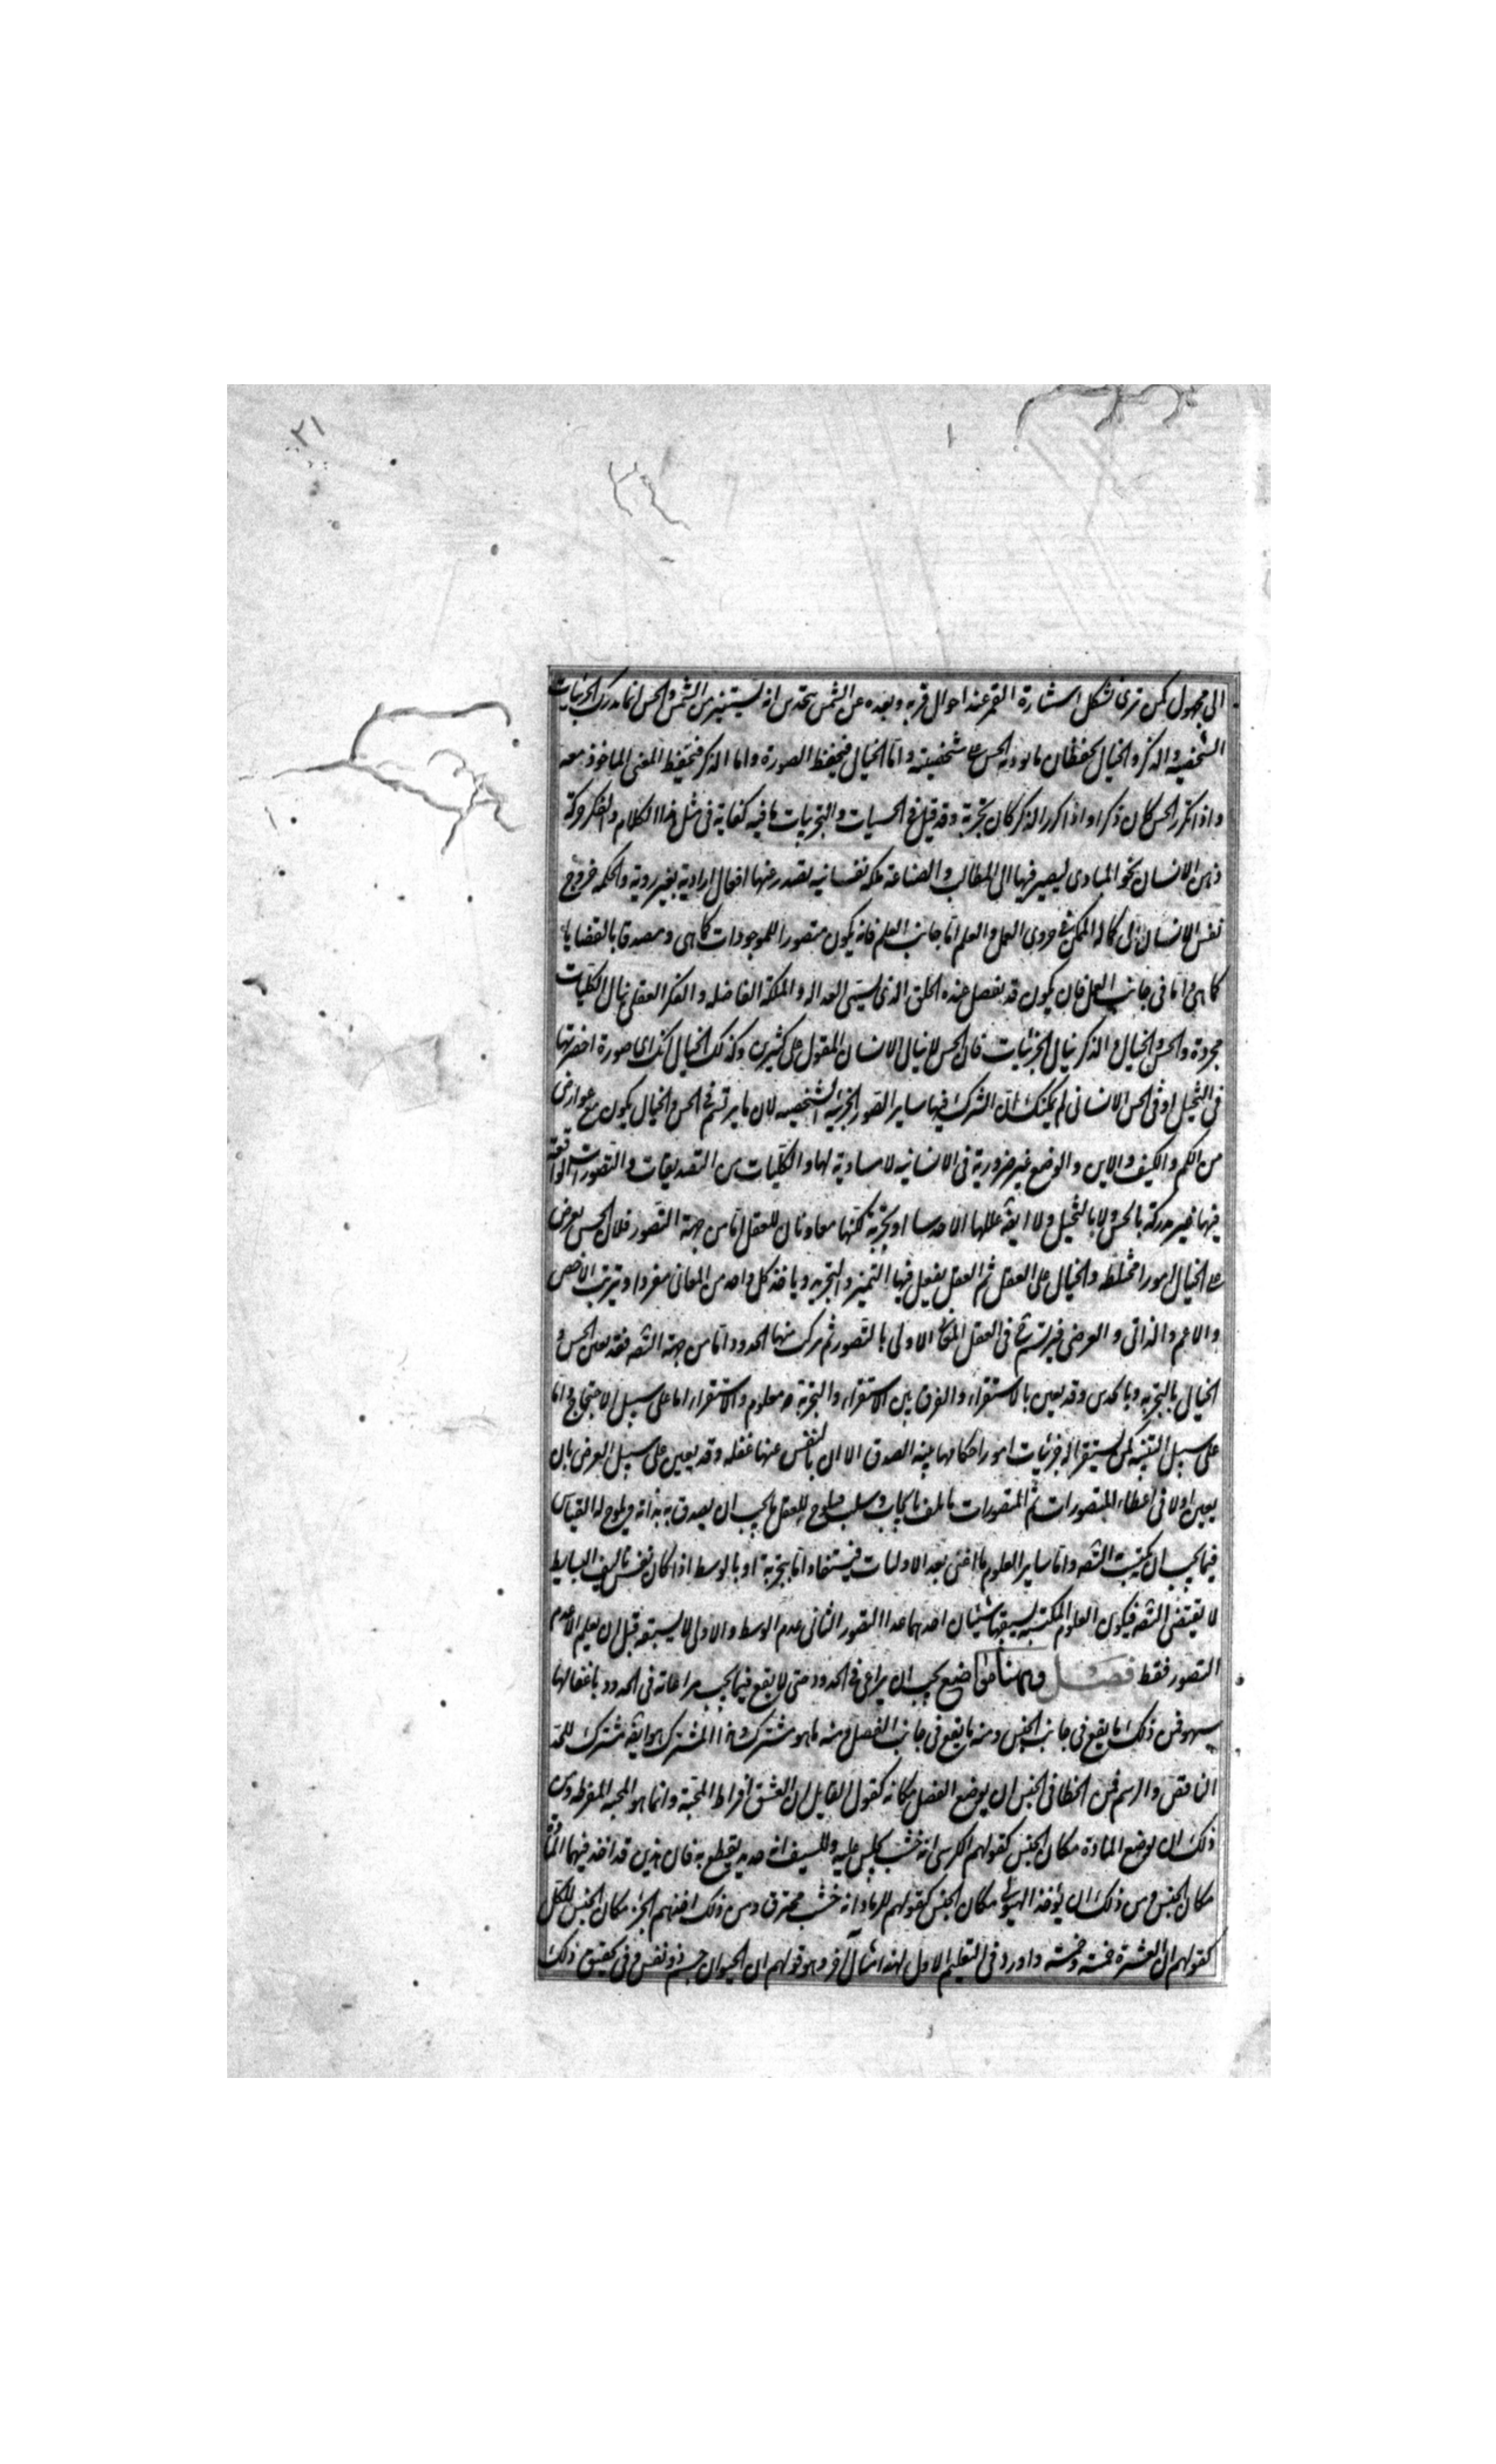 ٢١
الى مجهول كمن نرى شكل استنارة القمر عند احوال قربه وبعده عن الشمس بحدس انه يستنير من الشمس والحس انما يدرك الجزئيات
الشخصيه والذكر والخيال يحفظان ما يوديه الحس على شخصيته واما الخيال فيحفظ الصورة واما الذكر فيحفظ المعنى الماخوذ معه
واذا تكرر الحس كان ذكرا واذا كرر الذكر كان تجربة وقد قيل فى الحسيات والتجربيات ما فيه كفاية فى مثل هذا الكلام والفكر حركة
ذهن الانسان نحو المبادى ليصير فيها الى المطالب والصناعة ملكه نفسانيه تصدر عنها افعال ارادية بغير روية والحكمه خروج
نفس الانسان الى كماله الممكن فى حدوى العمل والعلم اما جانب العلم فانه يكون متصورا للموجودات كما هى ومصدقا بالقضايا
كما هى واما فى جانب العمل فان يكون قد يفصل عنده الخلق الذى يسمى العداله والملكة الفاضله والفكر العقلى ينال الكليات
مجردة والحس والخيال والذكر ينال الجزئيات فان الحس لا ينال الانسان المقول على كثيرين وكذلك الخيال لانك اى صورة احضرتها
فى التخيل او فى الحس الانسانى لم يمكنك ان تشرك فيها ساير الصور الجزئية الشخصيه لان ما يرتسم فى الحس والخيال يكون مع عوارض
من الكم والكيف والاين والوضع غير ضرورية فى الانسانيه لا مساوية لها والكليات من التصديقات والتصورات الواقعة
فيها غير مدركة بالحس ولا بالتخيل ولا ايضا عللها الا حدسا او تجربة لكنها معاونان للعقل اما من جهة التصور فلان الحس يعرض
على الخيال امورا مختلطه والخيال على العقل ثم العقل يفعل فيها التميز والتجزيه وياخذ كل واحد من المعانى مفردا ويرتب الاخص
والاعم والذاتى والعرضى فيرتسم فى العقل المعانى الاولى بالتصور ثم يركب منها الحدود اما من جهة التصد فقد يعين الحس و
الخيال بالتجربه وبالحدس وقد يعين بالاستقراء والفرق بين الاستقراء والتجربة معلوم والاستقراء اما على سبيل الاحتجاج واما
على سبيل التنبيه كمن يستقرا له جزئيات امور احكامها بينه الصدق الا ان بالنفس عنها غفله وقد يعين على سبيل العرض بان
يعين اولا فى اعطاء المتصورات ثم المتصورات يالف بايجاب وسلب فيلوح للعقل ما يجب ان يصدق به بذاته ويلوح له القياس
فيما يجب ان يكتسب التصد واما ساير العلوم ما اعنى بعد الاوليات فيستفاد اما بتجربة او بالوسط اذا كان نفس تاليف البسايط
لا يقتضى التصد فيكون العلوم المكتسبه يسبقها شيئان احدهما عدا التصور الثانى عدم الوسط والاول لا يسبقه قبل ان يعلم الا عدم
التصور فقط فصل وههنا مواضيع يجب ان يراعى فى الحدود حتى لا يقع فيما يجب مراعاته فى الحدود باغفالها
سهو فمن ذلك ما يقع فى جانب الجنس ومنه ما يقع فى جانب الفصل ومنه ما هو مشترك وهذا المشترك هو ايضا مشترك للحد
الناقص والرسم فمن الخطا فى الجنس ان يوضع الفصل مكانه كقول القايل ان العشق افراط المحبة وانما هو المحبه المفرطه ومن
ذلك ان يوضع المادة مكان الجنس كقولهم الكرسى انه خشب يجلس عليه وللسيف انه حديد يقطع به فان هذين قد اخذ فيهما المادة
مكان الجنس ومن ذلك ان يؤخذ الهيولى مكان الجنس كقولهم للرماد انه خشب محترق ومن ذلك اخذهم الجزء مكان الجنس للكل
كقولهم ان العشرة خمسه وخمسه واورد فى التعليم الاول لهذا مثال آخر وهو قولهم ان الحيوان جسم ذو نفس وفى تحقيق ذلك